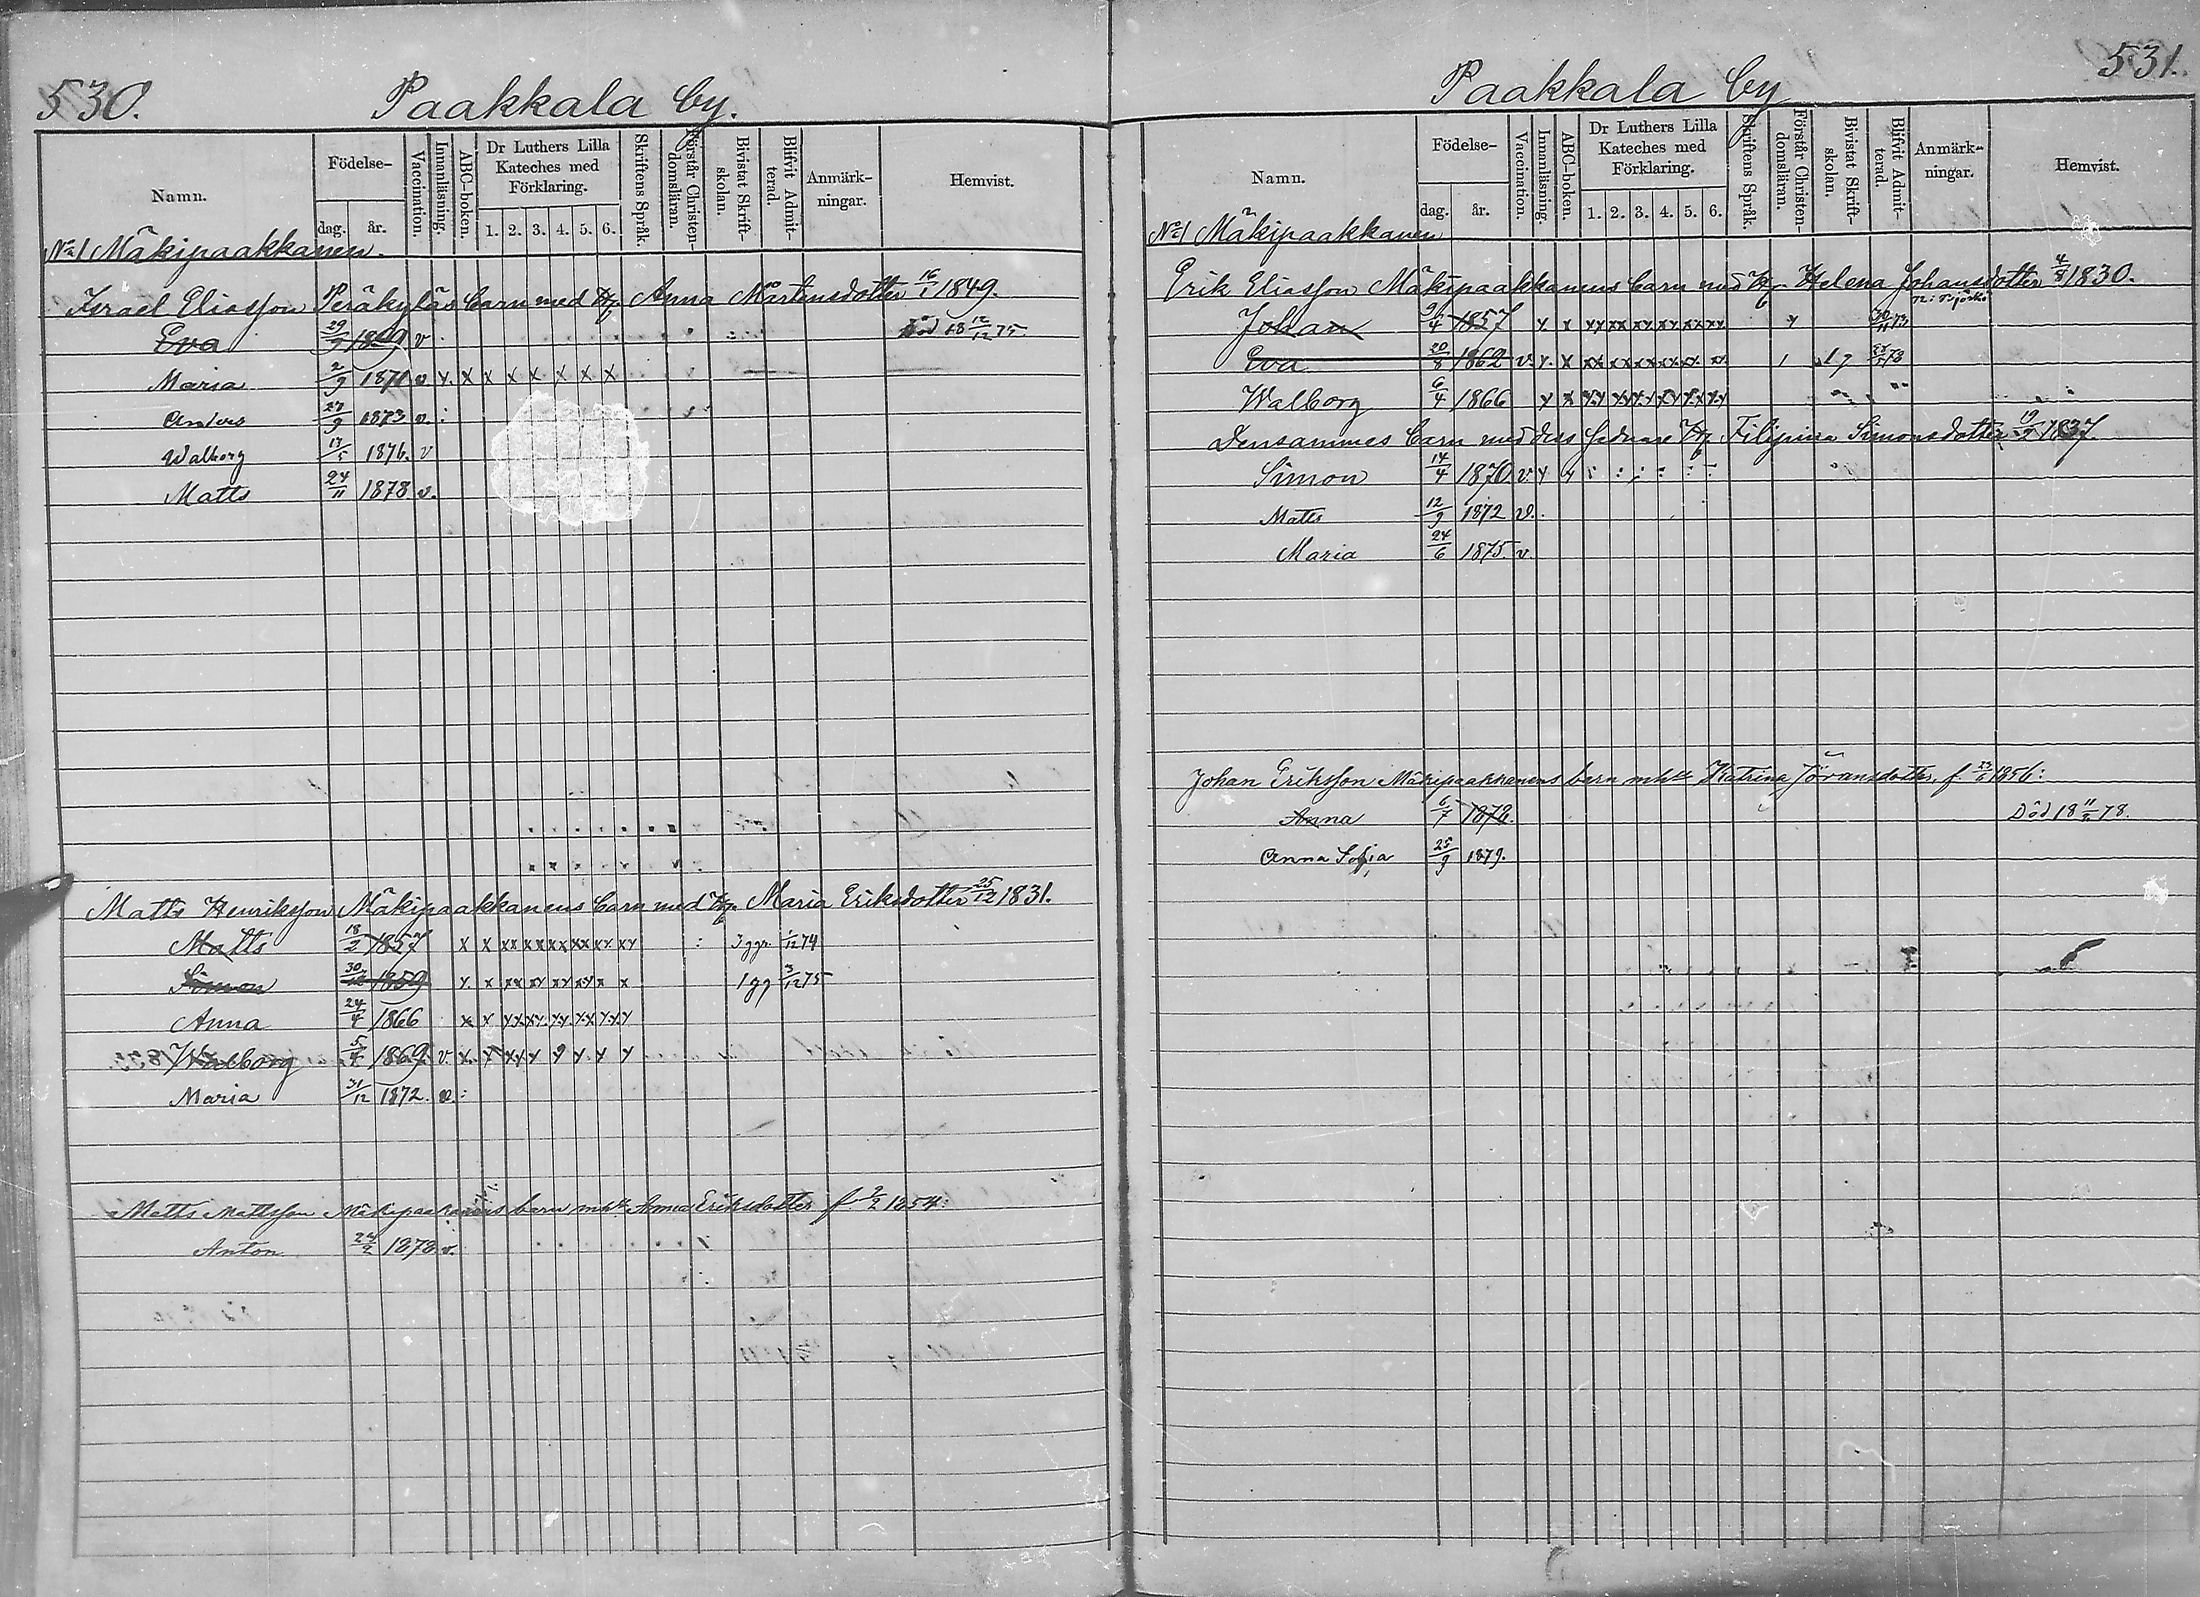 530.
Paakkala by.
Namn.
Födelse-
dag. år.
Vaccination.
Innanläsning.
ABC-boken.
Dr Luthers Lilla Kateches med Förklaring.
1. 2. 3. 4. 5. 6.
Skriftens Språk.
Förstår Christen-domsläran.
Bivistat Skrift-skolan.
Blifvit Admit-terad.
Anmärk-ningar.
Hemvist.
No 1 Mäkipaakkanen.
Israel Eliasson Peräkyläs barn med Anna Mårtensdotter 16/1 1849.
Eva 29/9 1869 v Död 18 12/12 75.
Maria 2/9 1871 v x. x x x x x x x
Anders 27/9 1873 v.
Walborg 13/5 1876. v
Matts 24/11 1878 v.
Matts Henriksson Mäkipaakkanens barn med Maria Eriksdotter 25/12 1831.
Matts 18/2 1857 x x xx xx xx xx xx xx 3 ggr. 1/12 74
Simon 1859 x x xx xx xx xx x 1 gg 3/12 75
Anna 24/4 1866 x x xx xx xx xx xx
Walborg 5/4 1869. v. x. x xx x x x x
Maria 31/12 1872. v.
Matts Mattsson Mäkipaakkanens barn m h u Anna Eriksdotter f 2/2 1854:
Anton 24/2 1878. v.
531.
Paakkala by
Namn.
Födelse-
dag. år.
Vaccination.
Innanläsning.
ABC-boken.
Dr Luthers Lilla Kateches med Förklaring.
1. 2. 3. 4. 5. 6.
Skriftens Språk.
Förstår Christen-domsläran.
Bivistat Skrift-skolan.
Blifvit Admit-terad.
Anmärk-ningar.
Hemvist.
No 1 Mäkipaakkanen
Erik Eliasson Mäkipaakkanens barn med Helena Johansdotter 4/8 1830.
Johan 1857 x x xx xx xx xx xx xx x 30/11 73
Eva 20/8 1862 v. x. x xx xx xx xx xx xx 1 1 g
Walborg 6/4 1866 x x xx xx xx xx xx xx
Densammes barn med dess sednare Filipina Simonsdotter 1837.
Simon 14/4 1870 v. x x
Matts 12/9 1872 v.
Maria 24/6 1875 v.
Johan Eriksson Mäkipaakkanens barn m h u Katrina Göransdotter, f. 23/6 1856:
Anna 6/7 1878. Död 18 78.
Anna Sofia 25/9 1879.